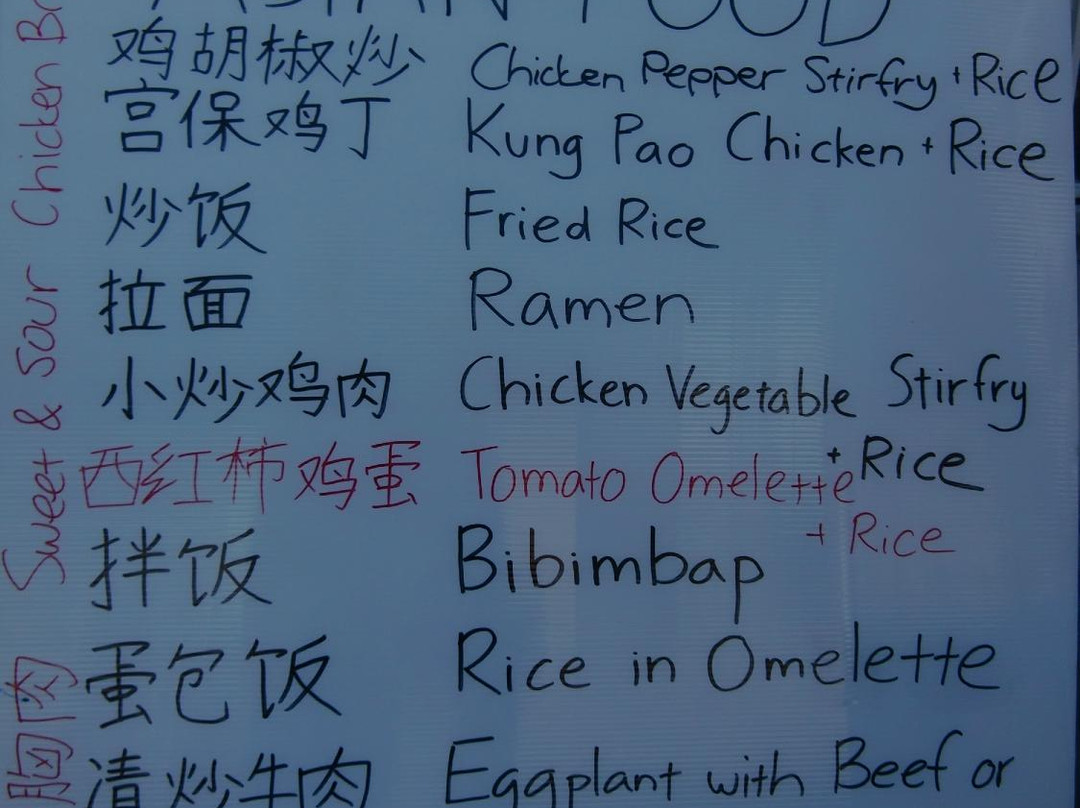 鸡胡椒炒 Chicken Pepper Stirfry + Rice
宫保鸡丁 Kung Pao Chicken + Rice
炒饭 Fried Rice
拉面 Ramen
小炒鸡肉 Chicken Vegetable Stirfry
+ Rice
西红柿鸡蛋 Tomato Omelette
+ Rice
拌饭 Bibimbap
蛋包饭 Rice in Omelette
清炒牛肉 Eggplant with Beef or
Sweet & Sour Chicken
胸肉